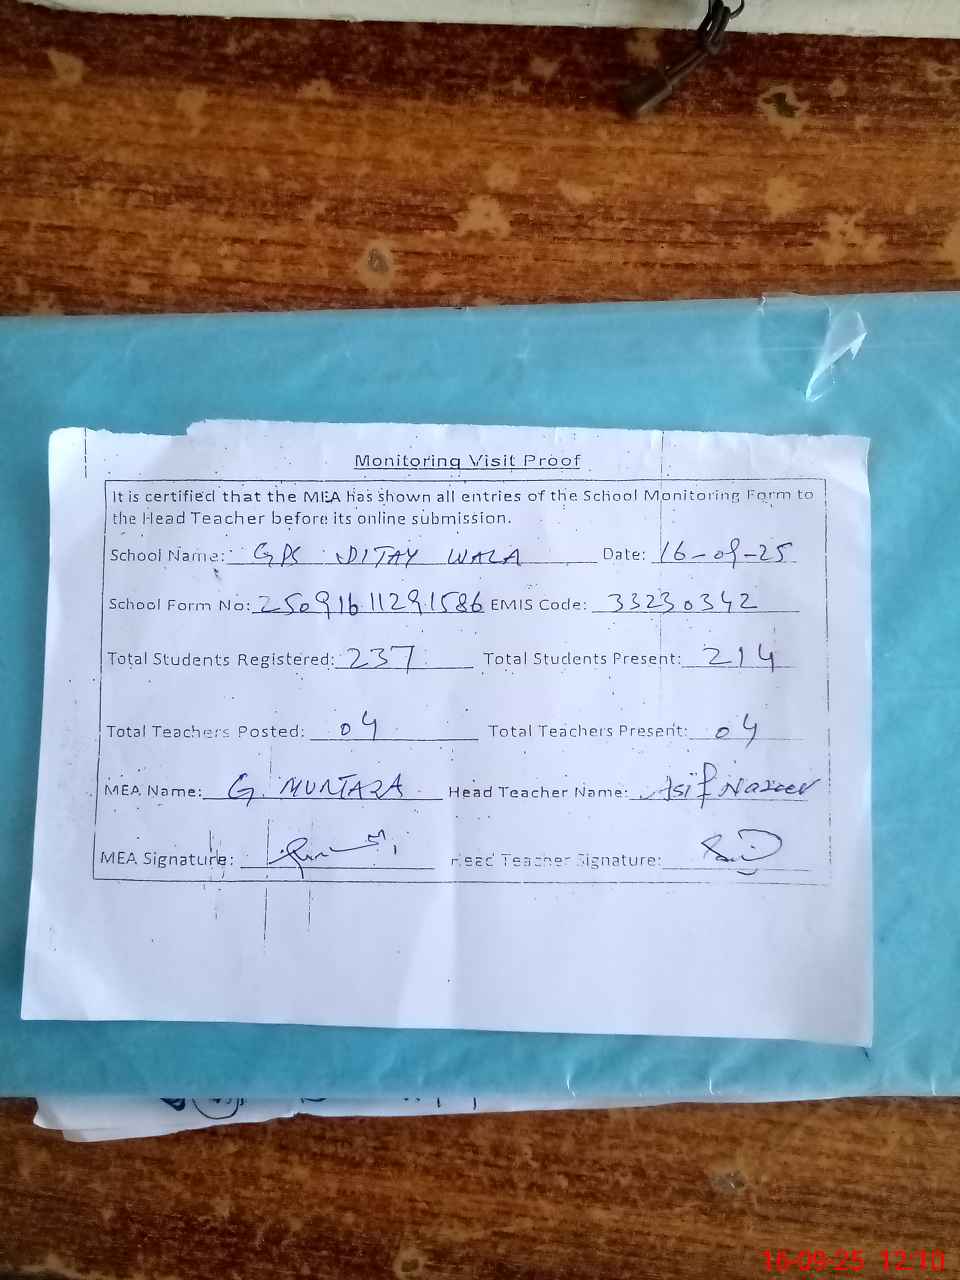 Monitoring Visit Proof
It is certified that the MEA has shown all entries of the School Monitoring Form to
the Head Teacher before its online submission.
School Name: GPS DITAY WALA Date: 16-09-25
School Form No: 25091611291586 EMIS Code: 33230342
Total Students Registered: 237 Total Students Present: 214
Total Teachers Posted: 04 Total Teachers Present: 04
MEA Name: G. MURTAZA Head Teacher Name: Asif Nazeer
MEA Signature: Head Teacher Signature:
16-09-25 12:10